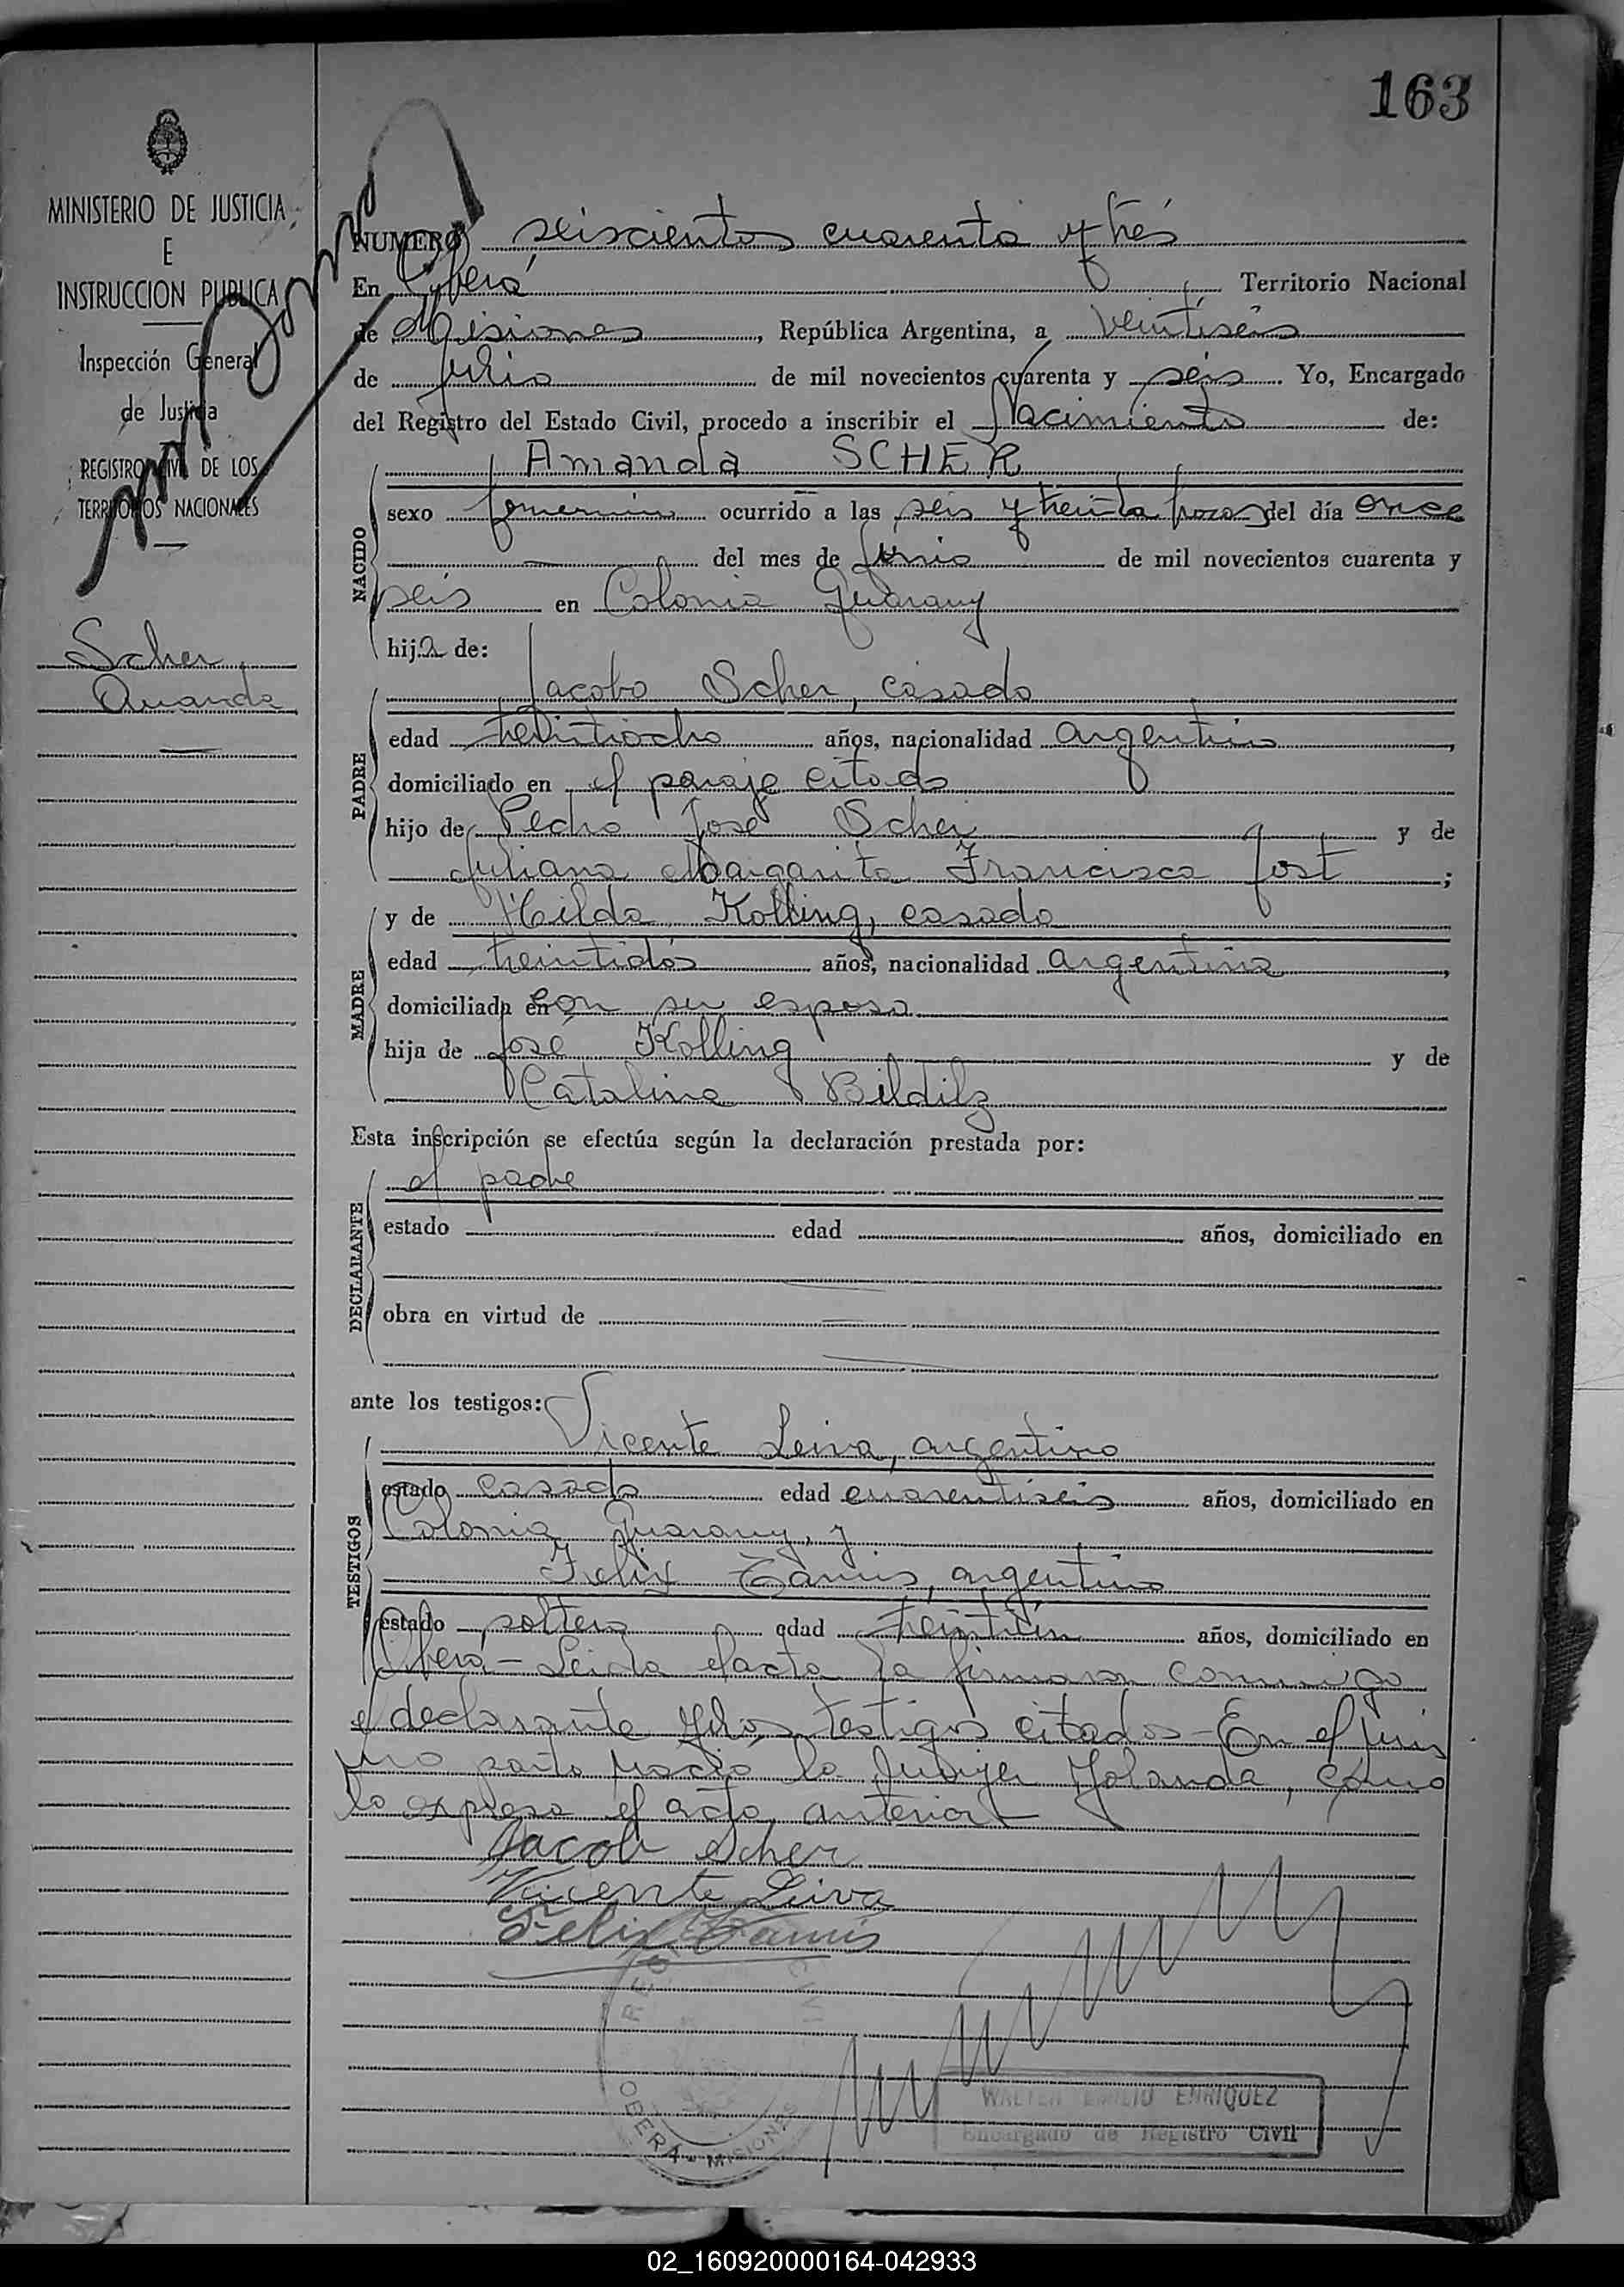 163
MINISTERIO DE JUSTICIA
E
INSTRUCCION PUBLICA
Inspección General
de Justicia
REGISTRO CIVIL DE LOS
TERRITORIOS NACIONALES
Scher,
Amanda
NUMERO seiscientos cuarenta y tres
En Oberá Territorio Nacional
de Misiones, República Argentina, a veintiseis
de Julio de mil novecientos cuarenta y seis. Yo, Encargado
del Registro del Estado Civil, procedo a inscribir el Nacimiento de:
Amanda SCHER
NACIDO
sexo femenino ocurrido a las seis y treinta horas del día once
del mes de Junio de mil novecientos cuarenta y
seis en Colonia Guarany
hija de:
PADRE
Jacobo Scher, casado
edad treintiocho años, nacionalidad argentino,
domiciliado en el paraje citado
hijo de Pedro José Scher y de
Juliana Margarita Francisca Jost;
MADRE
y de Hilda Kolling, casada
edad treintidós años, nacionalidad argentina,
domiciliada en con su esposo
hija de José Kolling y de
Catalina Bildilz
Esta inscripción se efectúa según la declaración prestada por:
DECLARANTE
el padre
estado edad años, domiciliado en
obra en virtud de
ante los testigos:
TESTIGOS
Vicente Leiva, argentino
estado casado edad cuarentiseis años, domiciliado en
Colonia Guarany, y
Felix argentino
estado soltero edad treintiún años, domiciliado en
Oberá - Leida el acta la firmaron conmigo
el declarante y los testigos citados - En el
parto nació la Yolanda, como
lo expresa el acta anterior -
Jacob Scher
Vicente Leiva
Felix
OBERA - MISIONES
WALTER EMILIO ENRIQUEZ
Encargado de Registro Civil
02_160920000164-042933